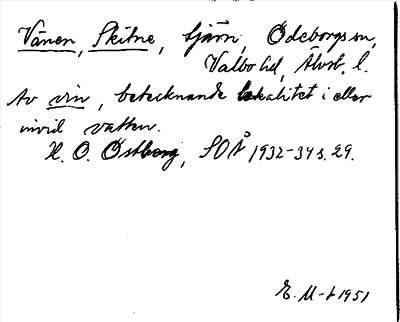 Vänen, Skitne, tjärn, Ödeborgs sn,
Valbo hd, Älvsb. l.
Av vin, betecknande lokalitet i eller
invid vatten.
H. O. Östberg, SOÅ 1932-34 s. 29.
E. M-t 1951